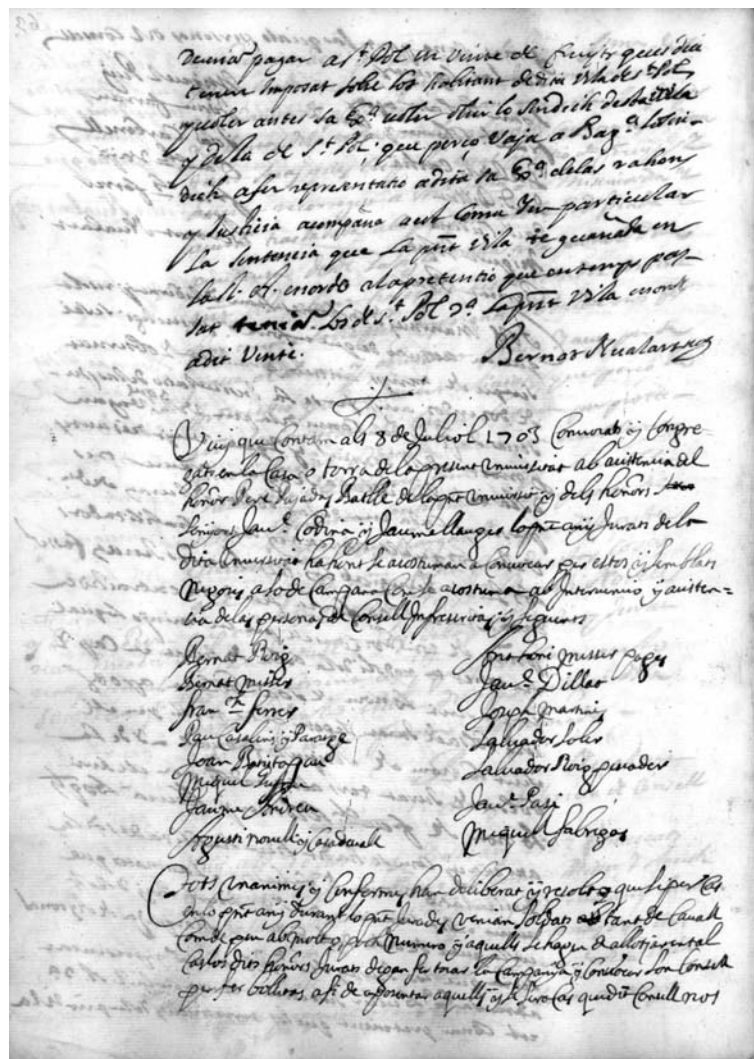 pagar a St. Pol un vinte de fruyts que es diu
tenen imposat sobre los habitant de dita vila de St. Pol
y voler antes sa Exa. voler ohir lo Sindich desta vila
y de la de St. Pol, que perço vaja a Bara. lo Sin-
dich a fer representatio a dita sa Exa. de las rahons
y Justicia acompaña a est Comu y en particular
La Sentencia que La pnt. Vila te guañada en
la R. A. en orde a la pretentio que en temps pas-
sat tenian Los de St. Pol La pnt Vila en orde
a dit Vinte.
Bernat
Vuy que Contam als 8 de Juliol 1703 Convocats y Congre-
gats en la Casa o torra de la present universitat ab asistencia del
honor. Pere Pujadas Batlle de la pnt. universitat y dels honors.
Senyors Jau. Codina y Jaume llauger lo pnt. any Jurats de la
dita universitat hahont se acostuman a Convocar per estos y semblats
Negocis, a so de Campana Com se acostuma ab Intervencio y asisten-
cia de las personas de Consell Infrascritas y seguents
Bernat Roig
Bernat misser
Fran. ferrer
Pau Casalins y
Joan
Miquel
Jaume
Agusti novell y Casadevall
Antoni misser pages
Jau. Dillat
Joseph martini
Salvador Soler
Salvador Roig pescador
Jau. Pasi
Miquell fabrigas
Tots unanimes y Conformes han deliberat y resolt que si per Cas
en lo pnt. any durant lo pnt. venian Soldats tant de Cavall
Com de peu ab molt o poch Numero y aquells se hagen de allotjar en tal
Cas los dits honors Jurats degan fer tocar la Campana y Convocar son Consell
per fer bolletas a fi de aposentar aquells y si dit Consell nos